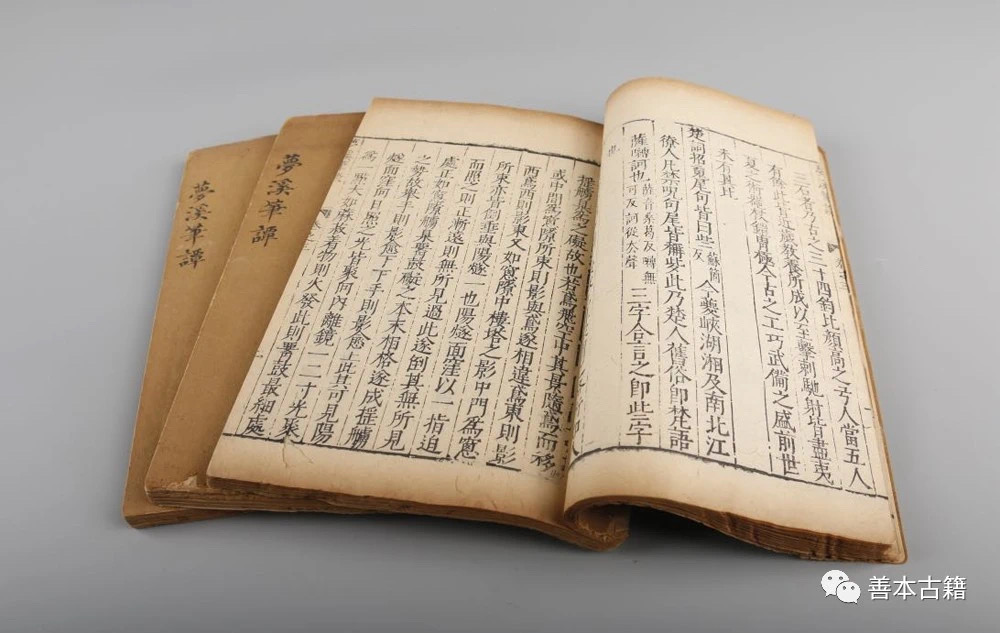 夢溪筆譚
夢溪筆譚
三石者乃古之三十四鈞比顏高之弓人當五人
有餘此皆近歲教養所成以至擊刺馳射皆盡夷
夏之術器仗鎧胄極今古之工巧武備之盛前世
未有其比
楚詞招䰟尾句皆曰些蘇箇反今夔峽湖湘及南北江
獠人凡禁呪句尾皆稱些此乃楚人舊俗即梵語
薩嚩訶也薩音桑葛反嚩無可反訶從去聲三字合言之即些字
搖艣臬爲之礙故也若鳶飛空中其影隨鳶而移
或中間爲窻隙所束則影與鳶遂相違鳶東則影
西鳶西則影東又如窻隙中樓塔之影中間爲窻
所束亦皆倒垂與陽燧一也陽燧面窪以一指迫
而照之則正漸遠則無所見過此遂倒其無所見
處正如窻隙艣臬腰鼓礙之本末相格遂成搖艣
之勢故舉手則影愈下下手則影愈上此其可見陽
燧面窪向日照之光皆聚向內離鏡一二寸光聚
爲一點大如麻菽著物則火發此則腰鼓最細處
善本古籍